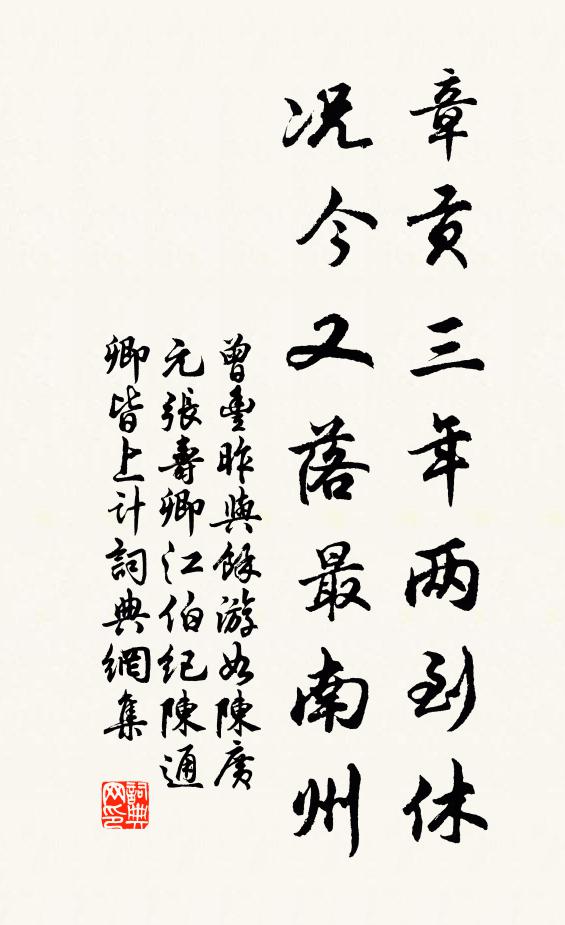 章贡三年两到休
况今又落最南州
曾豐昨與餘游如陳廣
元張壽卿江伯紀陳通
卿皆上计詞典網集
詞典网印